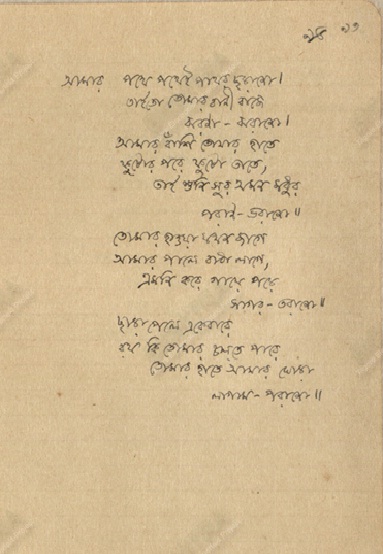 ২৪ ২৩
আমার পথে পথেই পাথর ছড়ানো।
তাইতো তোমার বাণী বাজে
ঝরনা-ঝরানো।
আমার বাঁশি তোমার হাতে
ফুটোর পরে ফুটো তাতে,
তাই শুনি সুর এমন মধুর
পরান-ভরানো॥
তোমার হাওয়া যখন জাগে
আমার পালে বাধা লাগে,
এমনি করে গায়ে পড়ে
সাগর-তরানো॥
ছাড়া পেলে একেবারে
রথ কি তোমার চলতে পারে
তোমার হাতে আমার ঘোড়া
লাগাম-পরানো॥